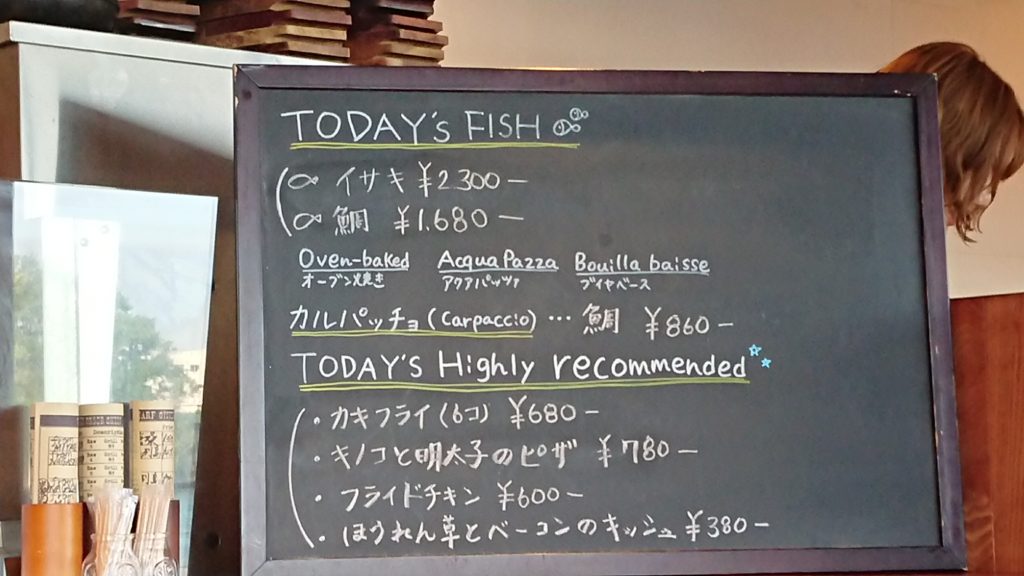 TODAY's FISH
イサキ ¥2300ー
鯛 ¥1.680ー
Oven-baked Acqua Pazza Bouilla baisse
オーブン焼き アクアパッツァ ブイヤベース
カルパッチョ (Carpaccio) … 鯛 ¥860ー
TODAY'S Highly recommended
・カキフライ (6コ) ¥680ー
・キノコと明太子のピザ ¥780ー
・フライドチキン ¥600ー
・ほうれん草とベーコンのキッシュ ¥380ー